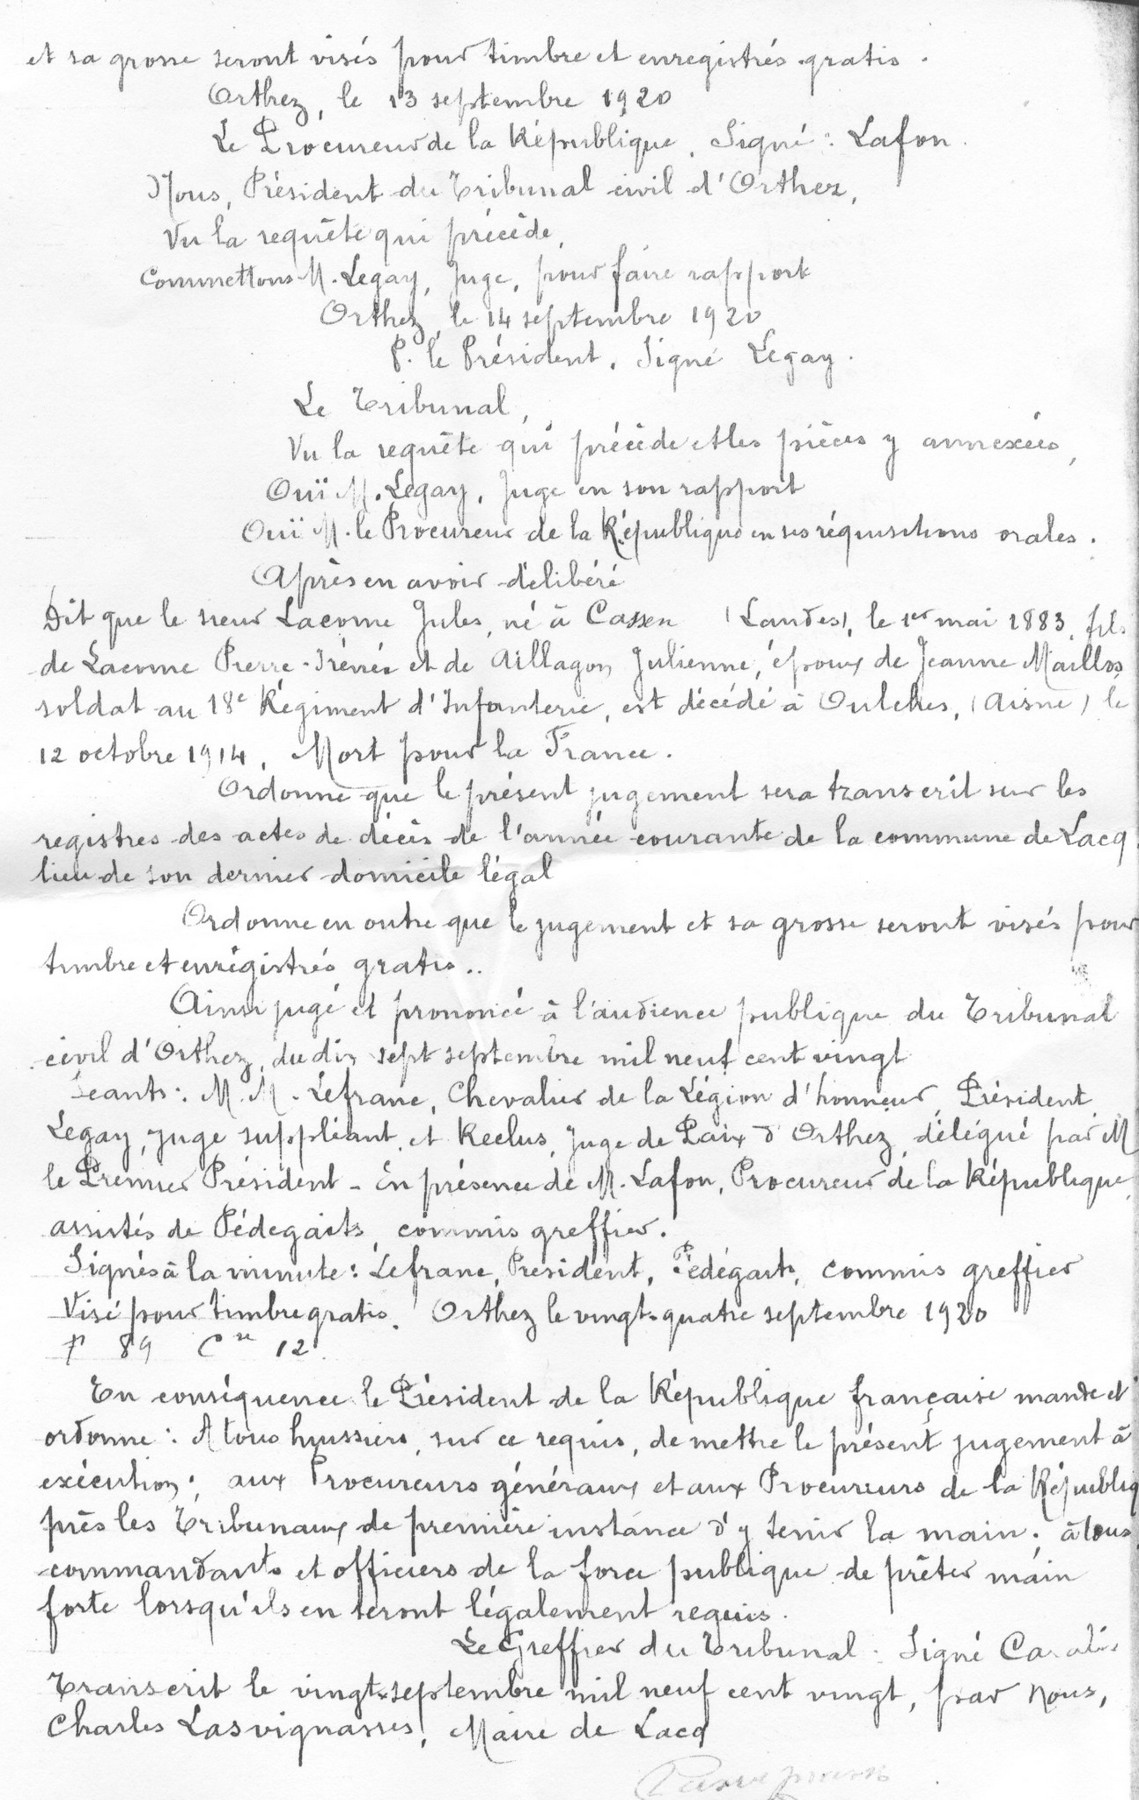 et sa grosse seront visés pour timbre et enregistrés gratis.
Orthez, le 13 septembre 1920
Le Procureur de la République, Signé: Lafon.
Nous, Président du Tribunal civil d'Orthez,
Vu la requête qui précède,
Commettons M. Legay, Juge, pour faire rapport
Orthez, le 14 septembre 1920
P. le Président, Signé Legay.
Le Tribunal,
Vu la requête qui précède et les pièces y annexées,
Ouï M. Legay, Juge en son rapport
Ouï M. le Procureur de la République en ses réquisitions orales.
Après en avoir délibéré
Dit que le sieur Lacome Jules, né à Cassen (Landes), le 1er mai 1883, fils
de Lacome Pierre-Irénée et de Aillagon Julienne, époux de Jeanne Maillos
soldat au 18e Régiment d'Infanterie, est décédé à Oulches, (Aisne) le
12 octobre 1914, Mort pour la France.
Ordonne que le présent jugement sera transcrit sur les
registres des actes de décès de l'année courante de la commune de Lacq,
lieu de son dernier domicile légal
Ordonne en outre que le jugement et sa grosse seront visés pour
timbre et enregistrés gratis..
Ainsi jugé et prononcé à l'audience publique du Tribunal
civil d'Orthez, du dix sept septembre mil neuf cent vingt
Séants: M.M. Lefranc, Chevalier de la Légion d'honneur, Président
Legay, juge suppléant, et Reclus, Juge de Paix d'Orthez, délégué par M
le Premier Président - En présence de M. Lafon, Procureur de la République,
assistés de Pédegaits, commis greffier.
Signés à la minute: Lefranc, Président, Pédégaits, commis greffier
Visé pour timbre gratis. Orthez le vingt-quatre septembre 1920
F° 89 Cse 12.
En conséquence le Président de la République française mande et
ordonne: A tous huissiers, sur ce requis, de mettre le présent jugement à
exécution; aux Procureurs généraux et aux Procureurs de la Républiq
près les Tribunaux de première instance d'y tenir la main; à tous
commandants et officiers de la force publique de prêter main
forte lorsqu'ils en seront légalement requis.
Le Greffier du Tribunal: Signé
Transcrit le vingt-septembre mil neuf cent vingt, par nous,
Charles Lasvignasses, Maire de Lacq